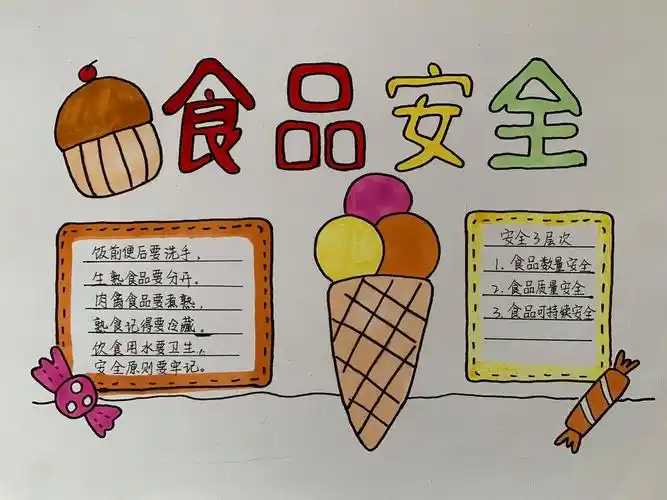 食品安全
饭前便后要洗手，
生熟食品要分开。
肉禽食品要煮熟，
熟食记得要冷藏。
饮食用水要卫生，
安全原则要牢记。
安全3层次
1、食品数量安全
2、食品质量安全
3、食品可持续安全